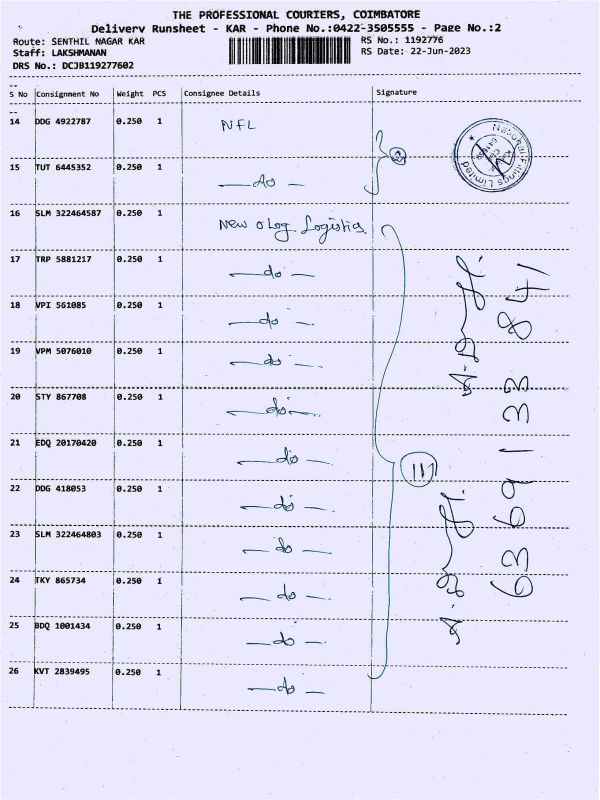 THE PROFESSIONAL COURIERS, COIMBATORE
Delivery Runsheet - KAR - Phone No.:0422-3505555 - Page No.:2
Route: SENTHIL NAGAR KAR
RS No.: 1192776
Staff: LAKSHMANAN
RS Date: 22-Jun-2023
DRS No.: DCJB119277602
S No Consignment No Weight PCS Consignee Details Signature
14 DDG 4922787 0.250 1 NFL
2
National Fittings Limited
15 TUT 6445352 0.250 1 — do —
16 SLM 322464587 0.250 1 New Log Logistics
17 TRP 5881217 0.250 1 — do —
18 VPI 561085 0.250 1 — do —
19 VPM 5076010 0.250 1 — do —
20 STY 867708 0.250 1 — do —
21 EDQ 20170420 0.250 1 — do —
22 DDG 418053 0.250 1 — do —
23 SLM 322464803 0.250 1 — do —
24 TKY 865734 0.250 1 — do —
25 BDQ 1001434 0.250 1 — do —
26 KVT 2839495 0.250 1 — do —
11
63691 33 841